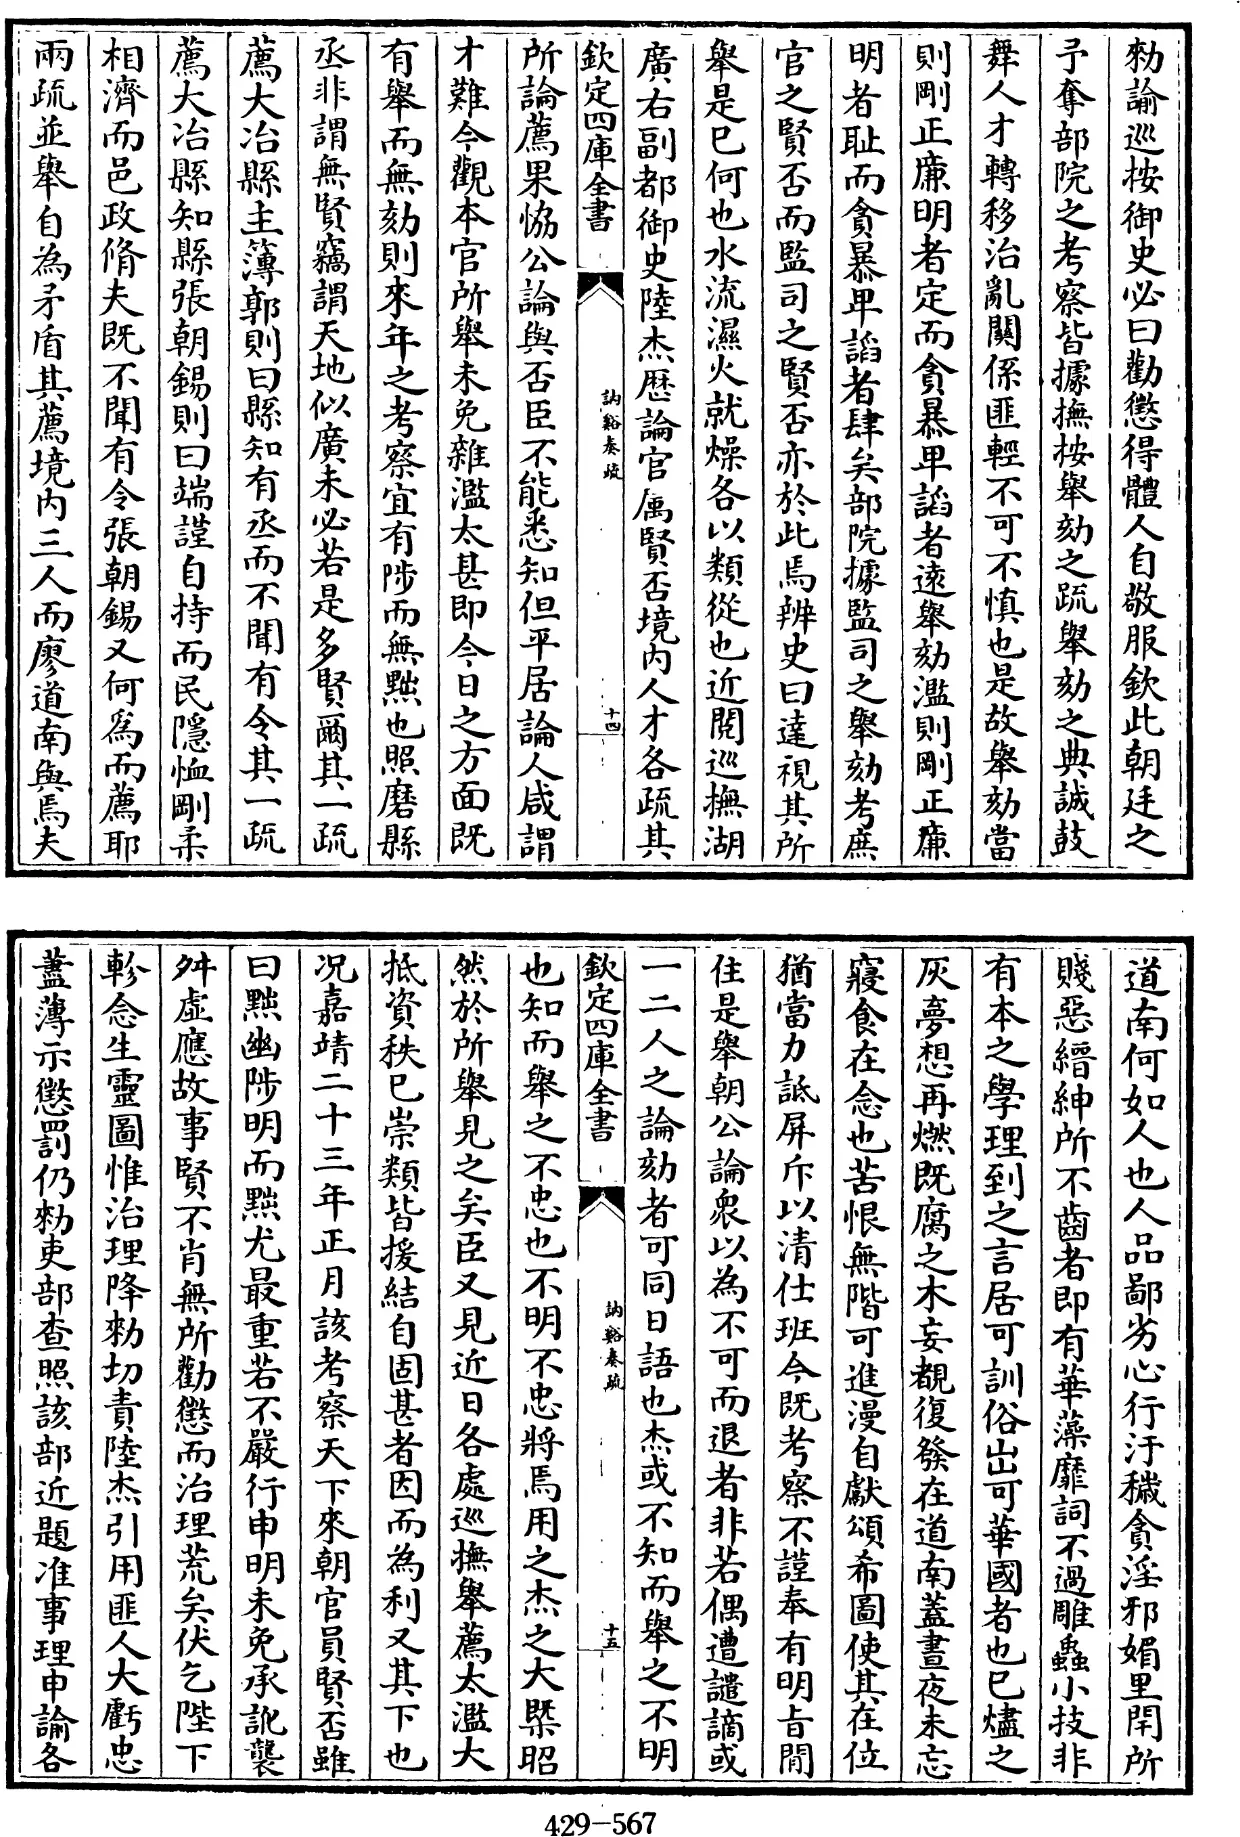 勅諭巡按御史必曰勸懲得體人自敬服欽此朝廷之
予奪部院之考察皆據撫按舉劾之疏舉劾之典誠鼓
舞人才轉移治亂關係匪輕不可不慎也是故舉劾當
則剛正廉明者定而貪暴卑謟者遠舉劾濫則剛正廉
明者耻而貪暴卑謟者肆矣部院據監司之舉劾考庶
官之賢否而監司之賢否亦於此焉辨史曰達視其所
舉是已何也水流濕火就燥各以類從也近閲巡撫湖
廣右副都御史陸杰歴論官属賢否境内人才各疏其
欽定四庫全書
訥谿奏疏
十四
所論薦果恊公論與否臣不能悉知但平居論人咸謂
才難今觀本官所舉未免雜濫太甚即今日之方面既
有舉而無劾則來年之考察宜有陟而無黜也照磨縣
丞非謂無賢竊謂天地似廣未必若是多賢爾其一疏
薦大冶縣主簿郭則曰縣知有丞而不聞有令其一疏
薦大冶縣知縣張朝錫則曰端謹自持而民隱恤剛柔
相濟而邑政脩夫既不聞有令張朝錫又何為而薦耶
兩疏並舉自為矛盾其薦境内三人而廖道南與焉夫
道南何如人也人品鄙劣心行汙穢貪淫邪媚里閈所
賤惡縉紳所不齒者即有華藻靡詞不過雕蟲小技非
有本之學理到之言居可訓俗出可華國者也已燼之
灰夢想再燃既腐之木妄覩復發在道南蓋晝夜未忘
寢食在念也苦恨無階可進漫自獻頌希圖使其在位
猶當力詆屏斥以清仕班今既考察不謹奉有明旨閒
住是舉朝公論衆以為不可而退者非若偶遭譴謫或
一二人之論劾者可同日語也杰或不知而舉之不明
欽定四庫全書
訥谿奏疏
十五
也知而舉之不忠也不明不忠將焉用之杰之大槩昭
然於所舉見之矣臣又見近日各處巡撫舉薦太濫大
抵資秩已崇類皆援結自固甚者因而為利又其下也
况嘉靖二十三年正月該考察天下來朝官員賢否雖
曰黜幽陟明而黜尤最重若不嚴行申明未免承訛襲
舛虚應故事賢不肖無所勸懲而治理荒矣伏乞陛下
軫念生靈圖惟治理降勅切責陸杰引用匪人大虧忠
藎薄示懲罰仍勅吏部查照該部近題准事理申諭各
429-567